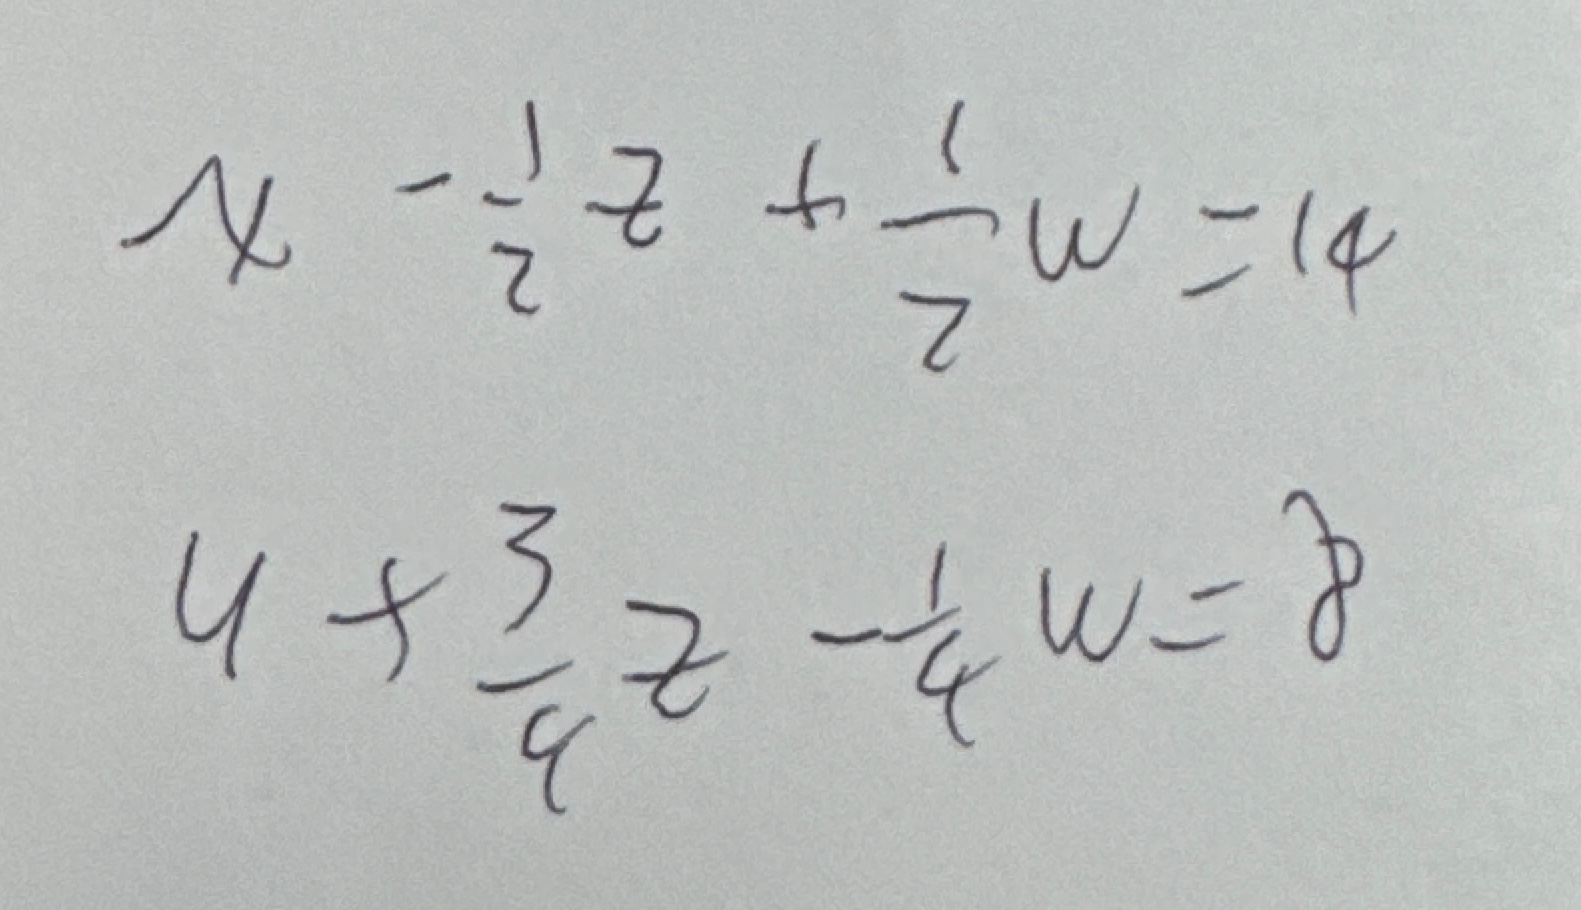 x - 1/2 z + 1/2 w = 14
y + 3/4 z - 1/4 w = 8